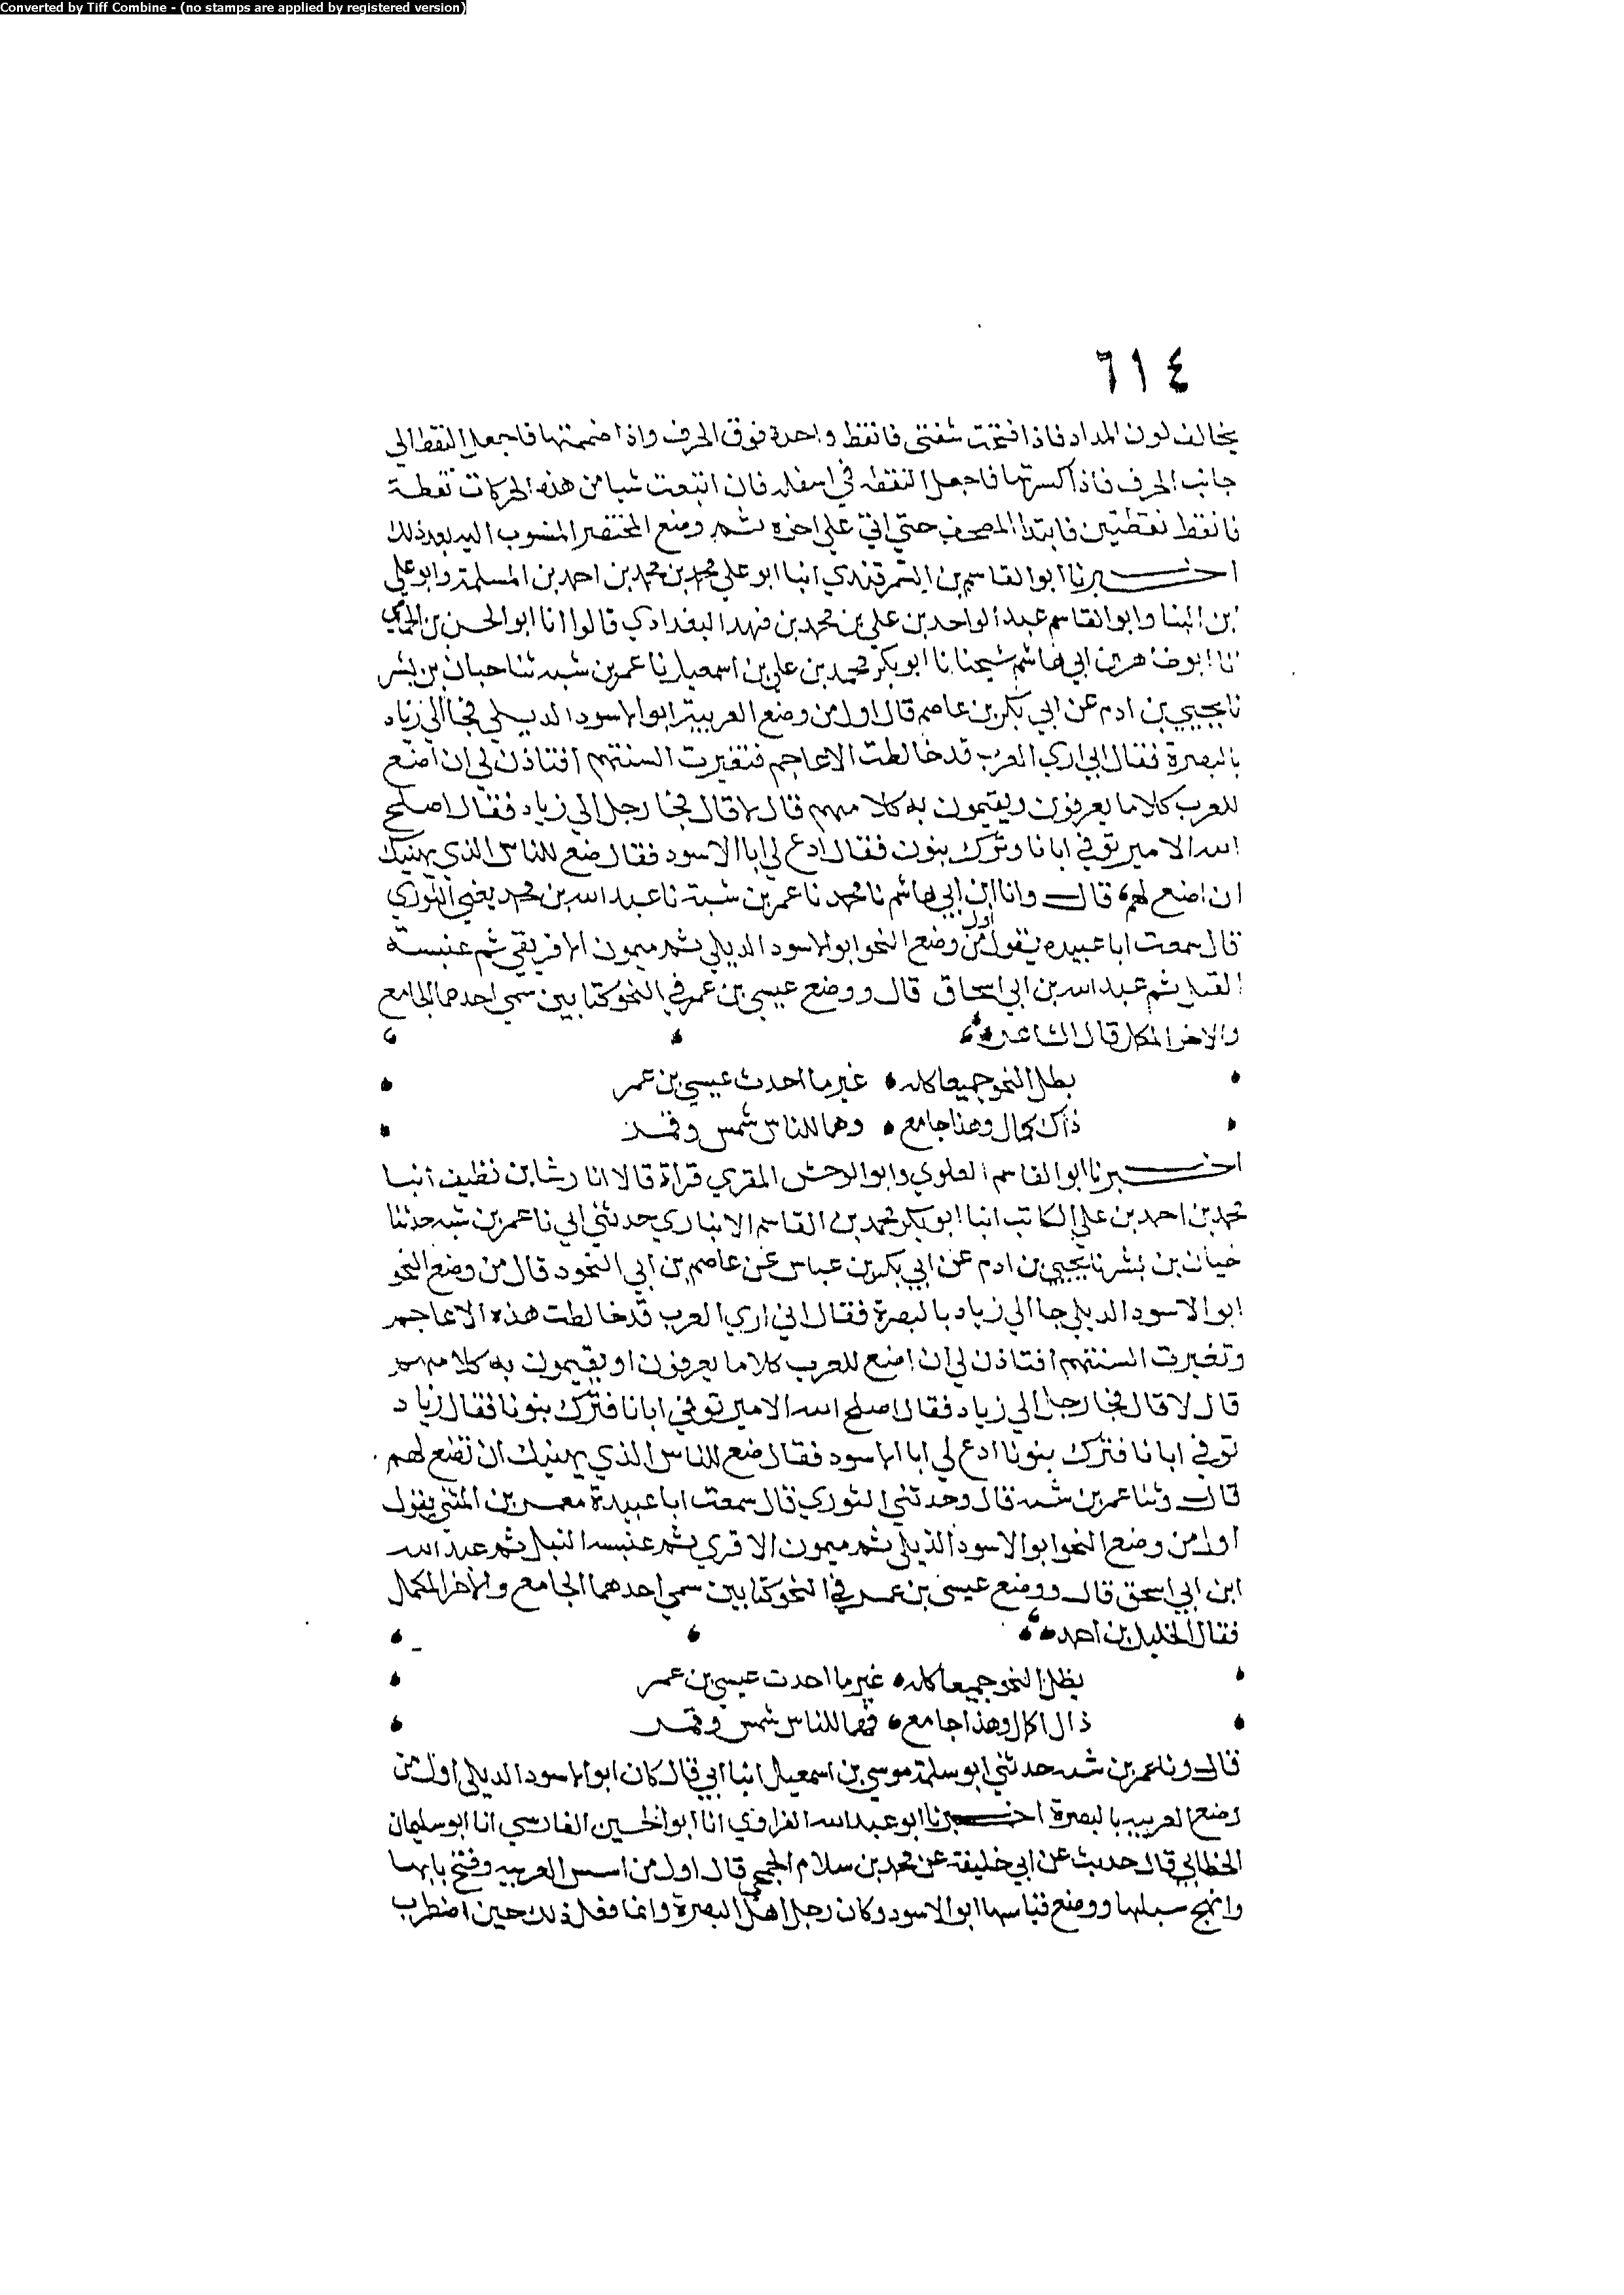 Converted by Tiff Combine - (no stamps are applied by registered version)
٦١٤
يخالف لون المداد فاذا فتحت شفتي فانقط واحدة فوق الحرف واذا ضممتها فاجعل النقط الي
جانب الحرف فاذا كسرتها فاجعل النقطه في اسفله فان اتبعت شيا من هذه الحركات نقطة
فانقط نقطتين فابتدا المصحف حتي اتي علي اخره ثم وضع المختصر المنسوب اليه بعد ذلك
اخبرنا ابو القاسم بن السمرقندي انبا ابو علي محمد بن محمد بن احمد بن المسلمة وابو علي
بن البنا وابو القاسم عبد الواحد بن علي بن محمد بن فهد البغدادي قالوا انا ابو الحسن بن الحمامي
نا ابو طاهر بن ابي هاشم شيخنا نا ابو بكر محمد بن علي بن اسمعيل نا عمر بن شبه ثنا حبان بن بشر
نا يحيي بن ادم عن ابي بكر بن عاصم قال اول من وضع العربية ابو الاسود الديلي فجا الي زياد
بالبصرة فقال اني اري العرب قد خالطت الاعاجم فتغيرت السنتهم افتاذن لي ان اضع
للعرب كلاما يعرفون ويقيمون به كلامهم قال لا قال فجا رجل الي زياد فقال اصلح
الله الامير توفي ابانا وترك بنون فقال ادع لي ابا الاسود فقال ضع للناس الذي نهيتك
ان اضع لهم قال وانا ابن ابي هاشم نا محمد نا عمر بن شبة نا عبد الله بن محمد يعني التوزي
قال سمعت ابا عبيده يقول اول من وضع النحو ابو الاسود الديلي ثم ميمون الافريقي ثم عنبسة
الفيل ثم عبد الله بن ابي اسحاق قال ووضع عيسي بن عمر في النحو كتابين سمي احدهما الجامع
والاخر المكمل قال الشاعر
بطل النحو جميعا كله غير ما احدث عيسي بن عمر
ذاك كمال وهذا جامع وهما للناس شمس وقمر
اخبرنا ابو القاسم العلوي وابو الوحش المقري قراة قالا انا رشا بن نظيف انبا
محمد بن احمد بن علي الكاتب انبا ابو بكر محمد بن القاسم الانباري حدثني ابي نا عمر بن شبه حدثنا
حيان بن بشر نا يحيي بن ادم عن ابي بكر بن عباس عن عاصم بن ابي النجود قال من وضع النحو
ابو الاسود الديلي جا الي زياد بالبصرة فقال اني اري العرب قد خالطت هذه الاعاجم
وتغيرت السنتهم افتاذن لي ان اضع للعرب كلاما يعرفون او يقيمون به كلامهم
قال لا قال فجا رجل الي زياد فقال اصلح الله الامير توفي ابانا فترك بنونا فقال زياد
توفي ابانا فترك بنونا ادع لي ابا الاسود فقال ضع للناس الذي نهيتك ان تضع لهم
قال وثنا عمر بن شبه قال وحدثني التوزي قال سمعت ابا عبيدة معمر بن المثني يقول
اول من وضع النحو ابو الاسود الديلي ثم ميمون الاقرن ثم عنبسه الفيل ثم عبد الله
ابن ابي اسحق قال ووضع عيسي بن عمر في النحو كتابين سمي احدهما الجامع والاخر المكمال
فقال الخليل بن احمد
بطل النحو جميعا كله غير ما احدث عيسي بن عمر
ذال اكمال وهذا جامع فهما للناس شمس وقمر
قال ونا عمر بن شبه حدثني ابو سلمة موسي بن اسمعيل انبا ابي قال كان ابو الاسود الديلي اول من
وضع العربيه بالبصرة اخبرنا ابو عبد الله الفراوي انا ابو الحسين الفارسي انا ابو سليمان
الخطابي قال حديث عن ابي خليفة عن محمد بن سلام الجمحي قال اول من اسس العربيه وفتح بابها
وانهج سبيلها ووضع قياسها ابو الاسود وكان رجل اهل البصرة وانما فعل ذلك حين اضطرب